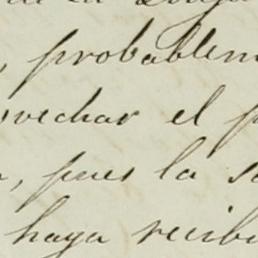 , probablem
ovechar el p
, pues la s
haya recib